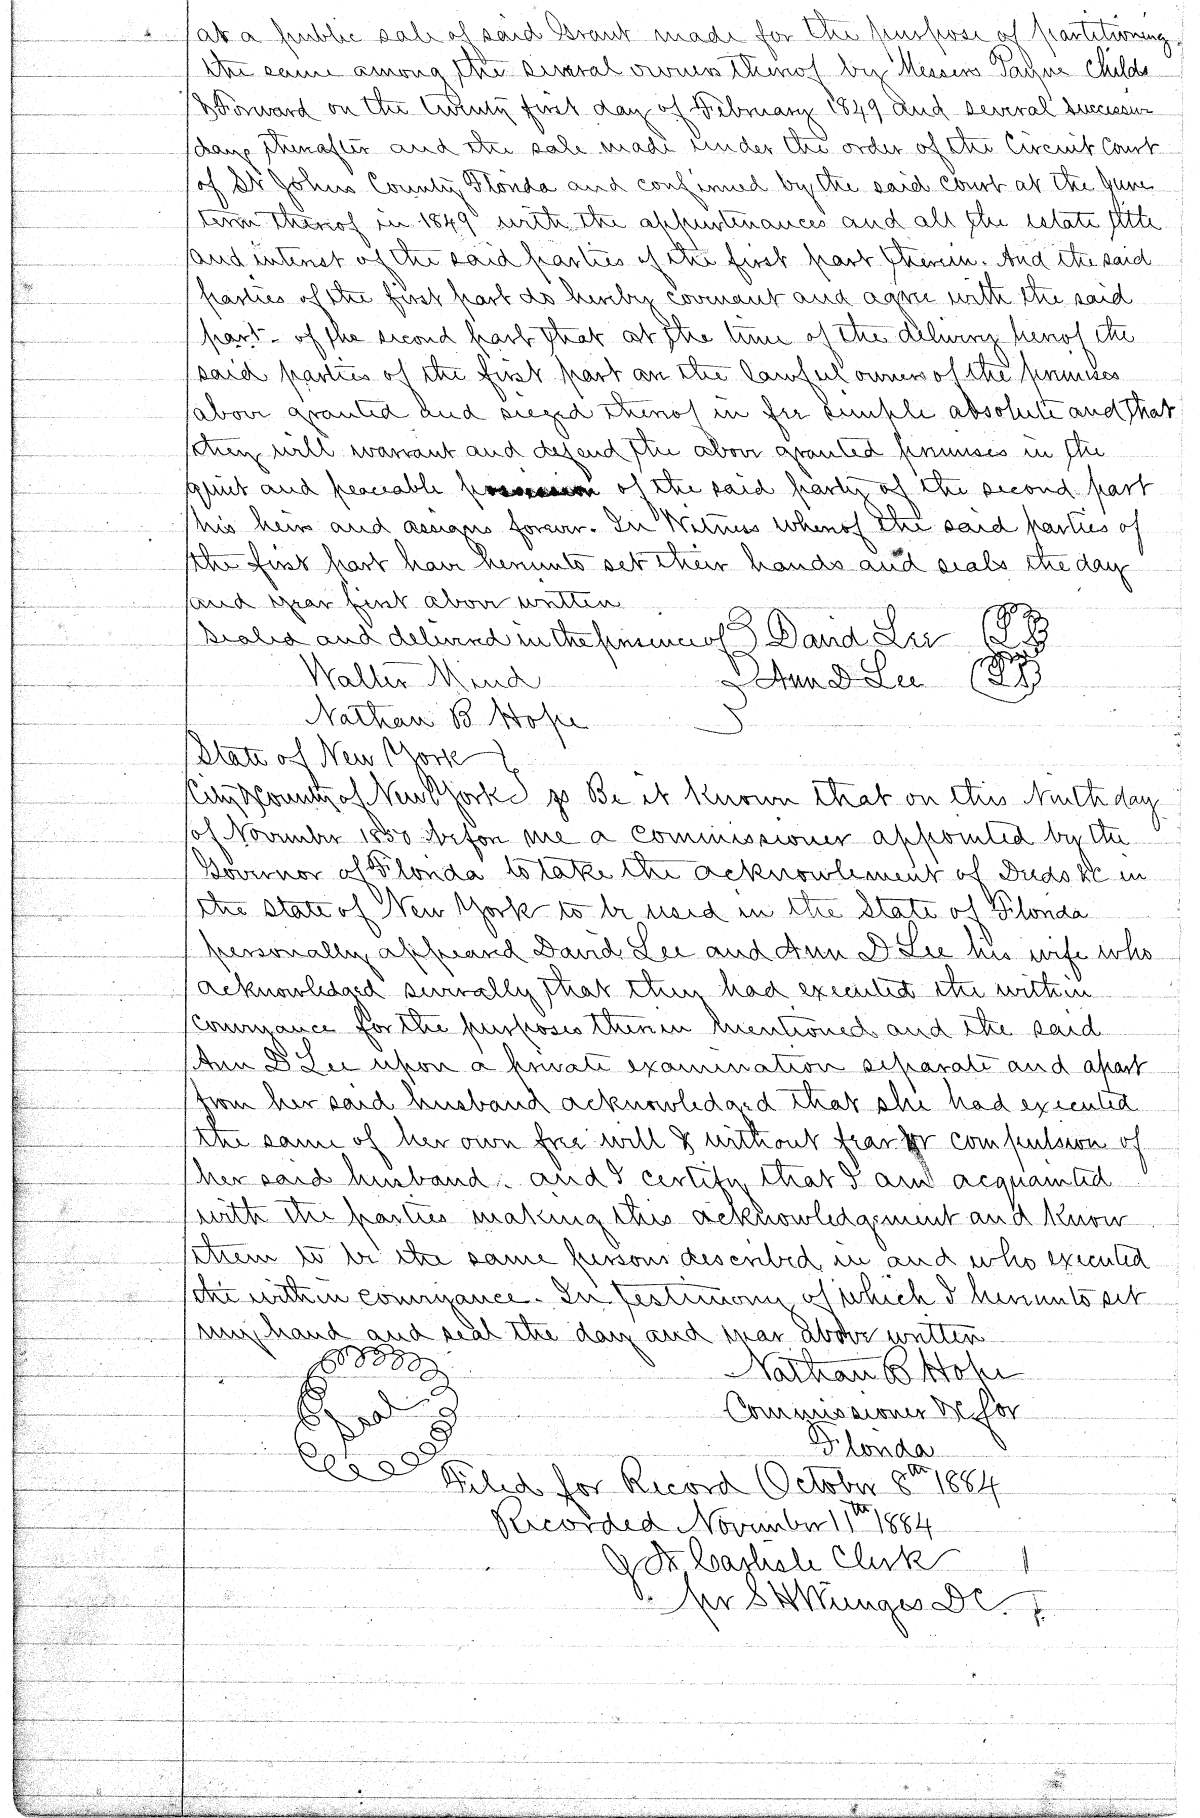 at a public sale of said Grant made for the purpose of partitioning
the same among the several owners thereof by Messers Payne Childs
& Forward on the twenty first day of February 1849 and several successive
days thereafter and the sale made under the order of the Circuit Court
of St Johns County Florida and confirmed by the said Court at the June
term thereof in 1849 with the appurtenances and all the estate title
and interest of the said parties of the first part therein. And the said
parties of the first part do hereby covenant and agree with the said
part- of the second part that at the time of the delivery hereof the
said parties of the first part are the lawful owners of the premises
above granted and siezed thereof in fee simple absolute and that
they will warrant and defend the above granted premises in the
quiet and peaceable possession of the said party of the second part
his heirs and assigns forever. In Witness whereof the said parties of
the first part have hereunto set their hands and seals the day
and year first above written
Sealed and delivered in the presence of } David Lee (LS)
Walter } Ann D Lee (LS)
Nathan B Hope }
State of New York }
City & County of New York } ss Be it known that on this Ninth day
of November 1850 before me a Commissioner appointed by the
Governor of Florida to take the acknowlement of Deeds &c in
the State of New York to be used in the State of Florida
personally appeared David Lee and Ann D Lee his wife who
acknowledged severally that they had executed the within
conveyance for the purposes therein mentioned and the said
Ann D Lee upon a private examination separate and apart
from her said husband acknowledged that she had executed
the same of her own free will & without fear or compulsion of
her said husband. and I certify that I am acquainted
with the parties making this acknowledgement and know
them to be the same persons described in and who executed
the within conveyance. In Testimony of which I hereunto set
my hand and seal the day and year above written
Nathan B Hope
Seal
Commissioner &c for
Florida
Filed for Record October 8th 1884
Recorded November 11th 1884
Carlisle Clerk
per S H D C.